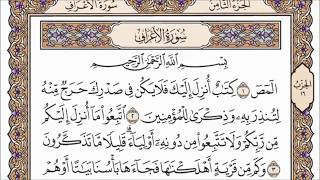 سُورَةُ الأَعْرَافِ
الجُزْءُ الثَّامِنُ
سُورَةُ الأَعْرَافِ
بِسْمِ اللَّهِ الرَّحْمَٰنِ الرَّحِيمِ
الٓمٓصٓ ١ كِتَٰبٌ أُنزِلَ إِلَيْكَ فَلَا يَكُن فِى صَدْرِكَ حَرَجٌ مِّنْهُ
لِتُنذِرَ بِهِۦ وَذِكْرَىٰ لِلْمُؤْمِنِينَ ٢ ٱتَّبِعُوا۟ مَآ أُنزِلَ إِلَيْكُم
مِّن رَّبِّكُمْ وَلَا تَتَّبِعُوا۟ مِن دُونِهِۦٓ أَوْلِيَآءَ قَلِيلًا مَّا تَذَكَّرُونَ
٣ وَكَم مِّن قَرْيَةٍ أَهْلَكْنَٰهَا فَجَآءَهَا بَأْسُنَا بَيَٰتًا أَوْ هُمْ
الحِزْبُ
١٦